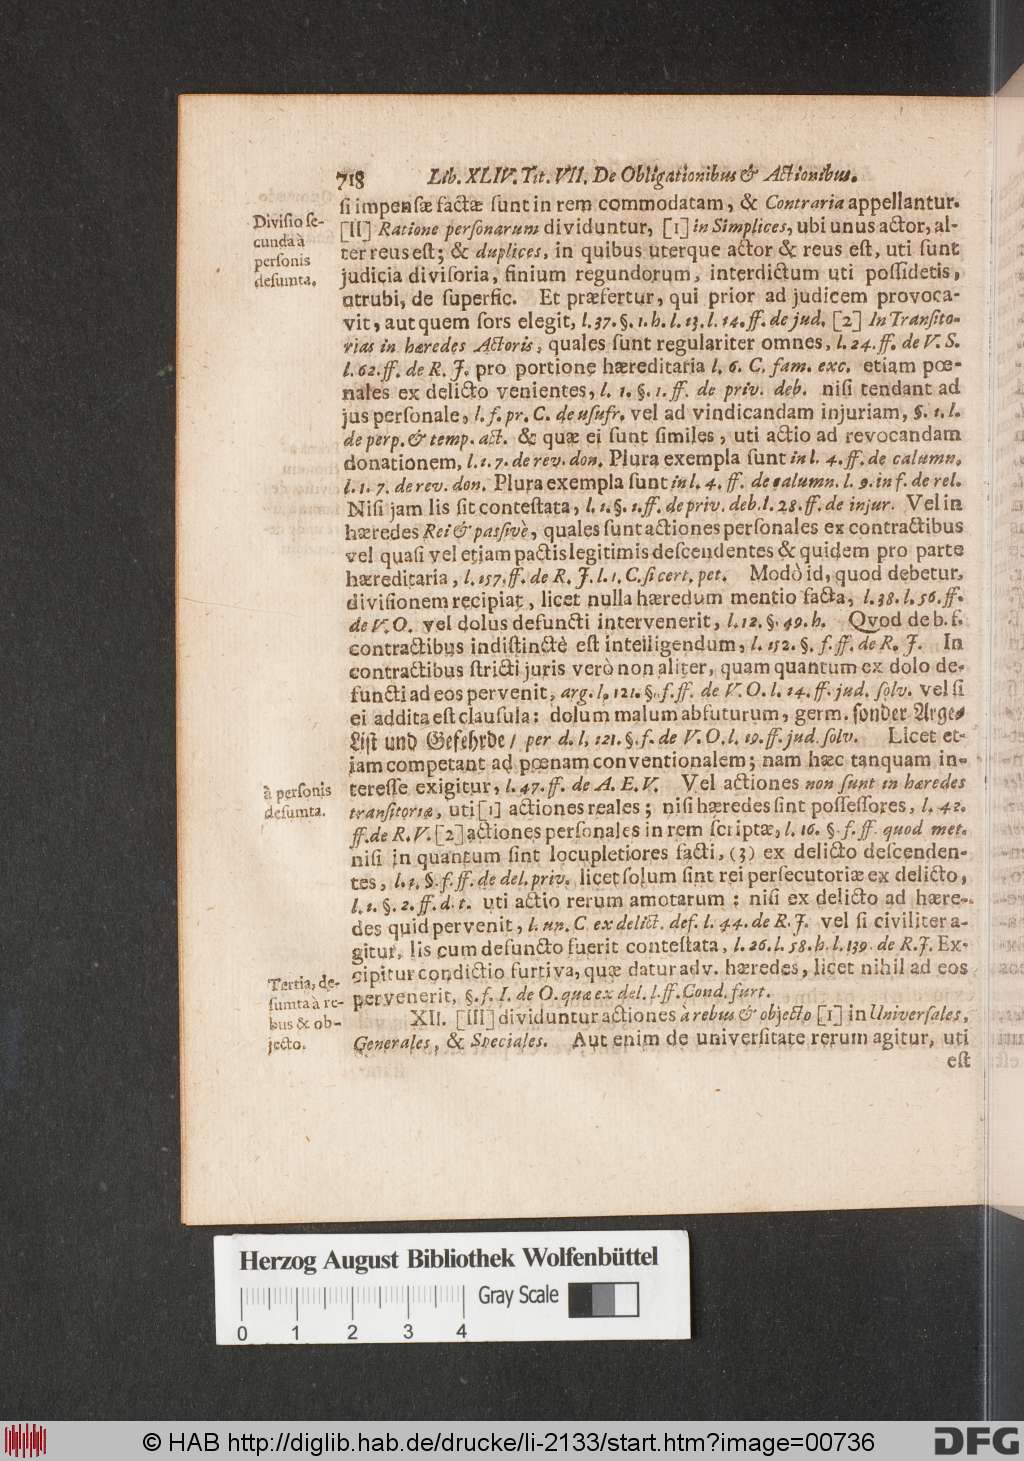 718 Lib. XLIV. Tit. VII. De Obligationibus & Actionibus.
ſi impenſæ factæ ſunt in rem commodatam, & Contraria appellantur.
Diviſio ſe-
cunda à
perſonis
deſumta.
[II] Ratione perſonarum dividuntur, [1] in Simplices, ubi unus actor, al-
ter reus eſt; & duplices, in quibus uterque actor & reus eſt, uti ſunt
judicia diviſoria, finium regundorum, interdictum uti poſſidetis,
utrubi, de ſuperfic. Et præfertur, qui prior ad judicem provoca-
vit, aut quem ſors elegit, l. 37. §. 1. h. l. 13. l. 14. ff. de jud. [2] In Tranſito-
rias in hæredes Actoris, quales ſunt regulariter omnes, l. 24. ff. de V. S.
l. 62. ff. de R. J. pro portione hæreditaria l. 6. C. fam. exc. etiam pœ-
nales ex delicto venientes, l. 1. §. 1. ff. de priv. deb. niſi tendant ad
jus perſonale, l. f. pr. C. de uſufr. vel ad vindicandam injuriam, §. 1. l.
de perp. & temp. act. & quæ ei ſunt ſimiles, uti actio ad revocandam
donationem, l. 1. 7. de rev. don. Plura exempla ſunt in l. 4. ff. de calumn.
l. 1. 7. de rev. don. Plura exempla ſunt in l. 4. ff. de calumn. l. 9. in f. de rel.
Niſi jam lis ſit conteſtata, l. 1. §. 1. ff. de priv. deb. l. 28. ff. de injur. Vel in
hæredes Rei & paſsivè, quales ſunt actiones perſonales ex contractibus
vel quaſi vel etjam pactis legitimis deſcendentes & quidem pro parte
hæreditaria, l. 157. ff. de R. J. l. 1. C. ſi cert. pet. Modò id, quod debetur,
diviſionem recipiat, licet nulla hæredum mentio facta, l. 38. l. 56. ff.
de V. O. vel dolus defuncti intervenerit, l. 12. §. 49. h. Qvod de b. f.
contractibus indiſtinctè eſt intelligendum, l. 152. §. f. ff. de R. J. In
contractibus ſtricti juris verò non aliter, quam quantum ex dolo de-
functi ad eos pervenit, arg. l. 121. §. f. ff. de V. O. l. 24. ff. jud. ſolv. vel ſi
ei addita eſt clauſula: dolum malum abfuturum, germ. ſonder Arge-
Liſt und Gefehrde / per d. l. 121. §. f. de V. O. l. 19. ff. jud. ſolv. Licet et-
iam competant ad pœnam conventionalem; nam hæc tanquam in-
à perſonis
deſumta.
tereſſe exigitur, l. 47. ff. de A. E. V. Vel actiones non ſunt in hæredes
tranſitoriæ, uti [1] actiones reales; niſi hæredes ſint poſſeſſores, l. 42.
ff. de R. V. [2] actiones perſonales in rem ſcriptæ, l. 16. §. f. ff. quod met.
niſi in quantum ſint locupletiores facti, (3) ex delicto deſcenden-
tes, l. 1. §. f. ff. de del. priv. licet ſolum ſint rei perſecutoriæ ex delicto,
l. 1. §. 2. ff. d. t. uti actio rerum amotarum: niſi ex delicto ad hære-
des quid pervenit, l. un. C. ex delict. def. l. 44. de R. J. vel ſi civiliter a-
gitur, lis cum defuncto fuerit conteſtata, l. 26. l. 58. h. l. 139. de R. J. Ex-
cipitur condictio furtiva, quæ datur adv. hæredes, licet nihil ad eos
pervenerit, §. f. I. de O. quæ ex del. l. ff. Cond. furt.
Tertia, de-
ſumta à re-
bus & ob-
jecto.
XII. [III] dividuntur actiones à rebus & objecto [1] in Univerſales,
Generales, & Speciales. Aut enim de univerſitate rerum agitur, uti
eſt
Herzog August Bibliothek Wolfenbüttel
Gray Scale
0 1 2 3 4
© HAB http://diglib.hab.de/drucke/li-2133/start.htm?image=00736
DFG